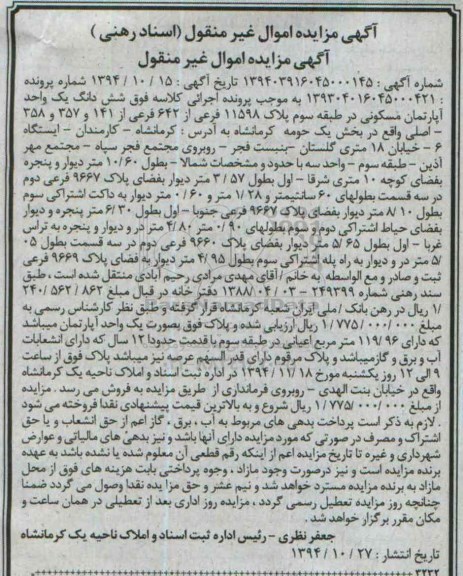 آگهی مزایده اموال غیر منقول (اسناد رهنی)
آگهی مزایده اموال غیر منقول
شماره آگهی: ۱۳۹۴۰۳۹۱۶۰۴۵۰۰۰۱۴۵ تاریخ آگهی: ۱۵ / ۱۰ / ۱۳۹۴ شماره پرونده
: ۱۳۹۳۰۴۰۱۶۰۴۵۰۰۰۴۲۱ به موجب پرونده اجرائی کلاسه فوق شش دانگ یک واحد
آپارتمان مسکونی در طبقه سوم پلاک ۱۱۵۹۸ فرعی از ۶۴۲ فرعی از ۱۴۱ و ۳۵۷ و ۳۵۸
- اصلی واقع در بخش یک حومه کرمانشاه به آدرس: کرمانشاه - کارمندان - ایستگاه
۶ - خیابان ۱۸ متری گلستان - نبست فجر - روبروی مجتمع فجر سپاه - مجتمع مهر
آذین - طبقه سوم - واحد سه با حدود و مشخصات شمالا - بطول ۱۰/۶۰ متر دیوار و پنجره
بفضای کوچه ۱۰ متری شرقا - اول بطول ۵۷ / ۳ متر دیوار بفضای پلاک ۹۶۶۷ فرعی دوم
در سه قسمت بطولهای ۶۰ سانتیمتر و ۱/۲۸ متر و ۰/۶۰ متر دیوار به داکت اشتراکی سوم
بطول ۸/۱۰ متر دیوار بفضای پلاک ۹۶۶۷ فرعی جنوبا - اول بطول ۶/۳۰ متر پنجره و دیوار
بفضای حیاط اشتراکی دوم و سوم بطولهای ۰/۹۰ متر ۴/۸۰ متر در و دیوار و پنجره به تراس
غربا - اول بطول ۵/۶۵ متر دیوار بفضای پلاک ۹۶۶۰ فرعی دوم در سه قسمت بطول ۰۵
/۵ متر در و دیوار به راه پله اشتراکی سوم بطول ۴/۹۵ متر دیوار به فضای پلاک ۹۶۶۹ فرعی
ثبت و صادر و مع الواسطه به خانم / آقای مهدی مرادی رحیم آبادی منتقل شده است، طبق
سند رهنی شماره ۲۴۹۳۹۹ - ۰۳ / ۰۴ / ۱۳۸۸ دفتر خانه در قبال مبلغ ۸۶۲ / ۵۶۲ / ۲۴۰
/۱ ریال در رهن بانک / ملی ایران شعبه کرمانشاه قرار گرفته و طبق نظر کارشناس رسمی به
مبلغ ۱/۷۷۵/۰۰۰/۰۰۰ ریال ارزیابی شده و پلاک فوق بصورت یک واحد آپارتمان میباشد
که دارای ۱۱۹/۹۶ متر مربع اعیانی در طبقه سوم با قدمت حدودا ۱۲ سال که دارای انشعابات
آب و برق و گاز میباشد و پلاک مرقوم دارای قدر السهم عرصه نیز میباشد پلاک فوق از ساعت
۹ الی ۱۲ روز یکشنبه مورخ ۱۸ / ۱۱ / ۱۳۹۴ در اداره ثبت اسناد و املاک ناحیه یک کرمانشاه
واقع در خیابان بنت الهدی - روبروی فرمانداری از طریق مزایده به فروش می رسد. مزایده
از مبلغ ۱/۷۷۵/۰۰۰/۰۰۰ ریال شروع و به بالاترین قیمت پیشنهادی نقدا فروخته می شود
. لازم به ذکر است پرداخت بدهی های مربوط به آب، برق، گاز اعم از حق انشعاب و یا حق
اشتراک و مصرف در صورتی که مورد مزایده دارای آنها باشد و نیز بدهی های مالیاتی و عوارض
شهرداری و غیره تا تاریخ مزایده اعم از اینکه رقم قطعی آن معلوم شده یا نشده باشد به عهده
برنده مزایده است و نیز درصورت وجود مازاد، وجوه پرداختی بابت هزینه های فوق از محل
مازاد به برنده مزایده مسترد خواهد شد و نیم عشر و حق مزایده نقدا وصول می گردد ضمنا
چنانچه روز مزایده تعطیل رسمی گردد، مزایده روز اداری بعد از تعطیلی در همان ساعت و
مکان مقرر برگزار خواهد شد.
جعفر نظری - رئیس اداره ثبت اسناد و املاک ناحیه یک کرمانشاه
تاریخ انتشار: ۲۷ / ۱۰ / ۱۳۹۴
۳۲۳۲